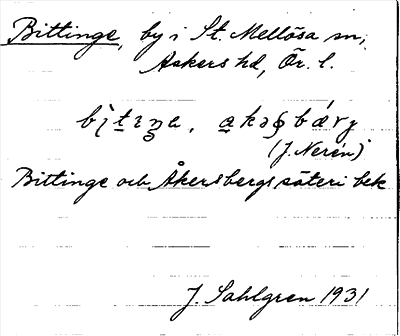 Bittinge, by i St. Mellösa sn,
Askers hd, Ör. l.
(J. Nerén)
Bittinge och Åkersbergs säteri bek
J. Sahlgren 1931